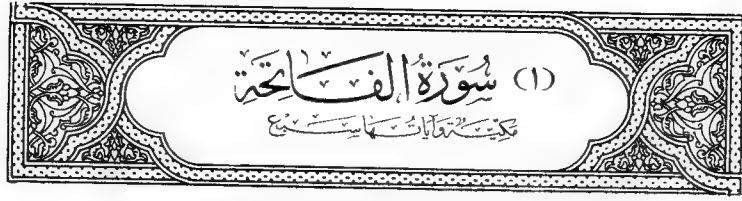 (١) سُورَةُ الفَاتِحَة
مَكيَّة وَآيَاتُهَا سَبْع